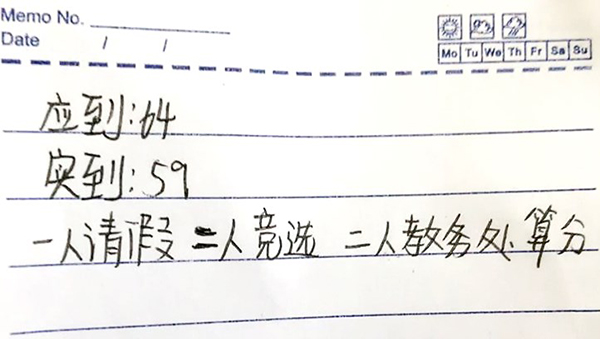 Memo No.
Date / /
Mo Tu We Th Fr Sa Su
应到:64
实到:59
一人请假 二人竞选 二人教务处算分